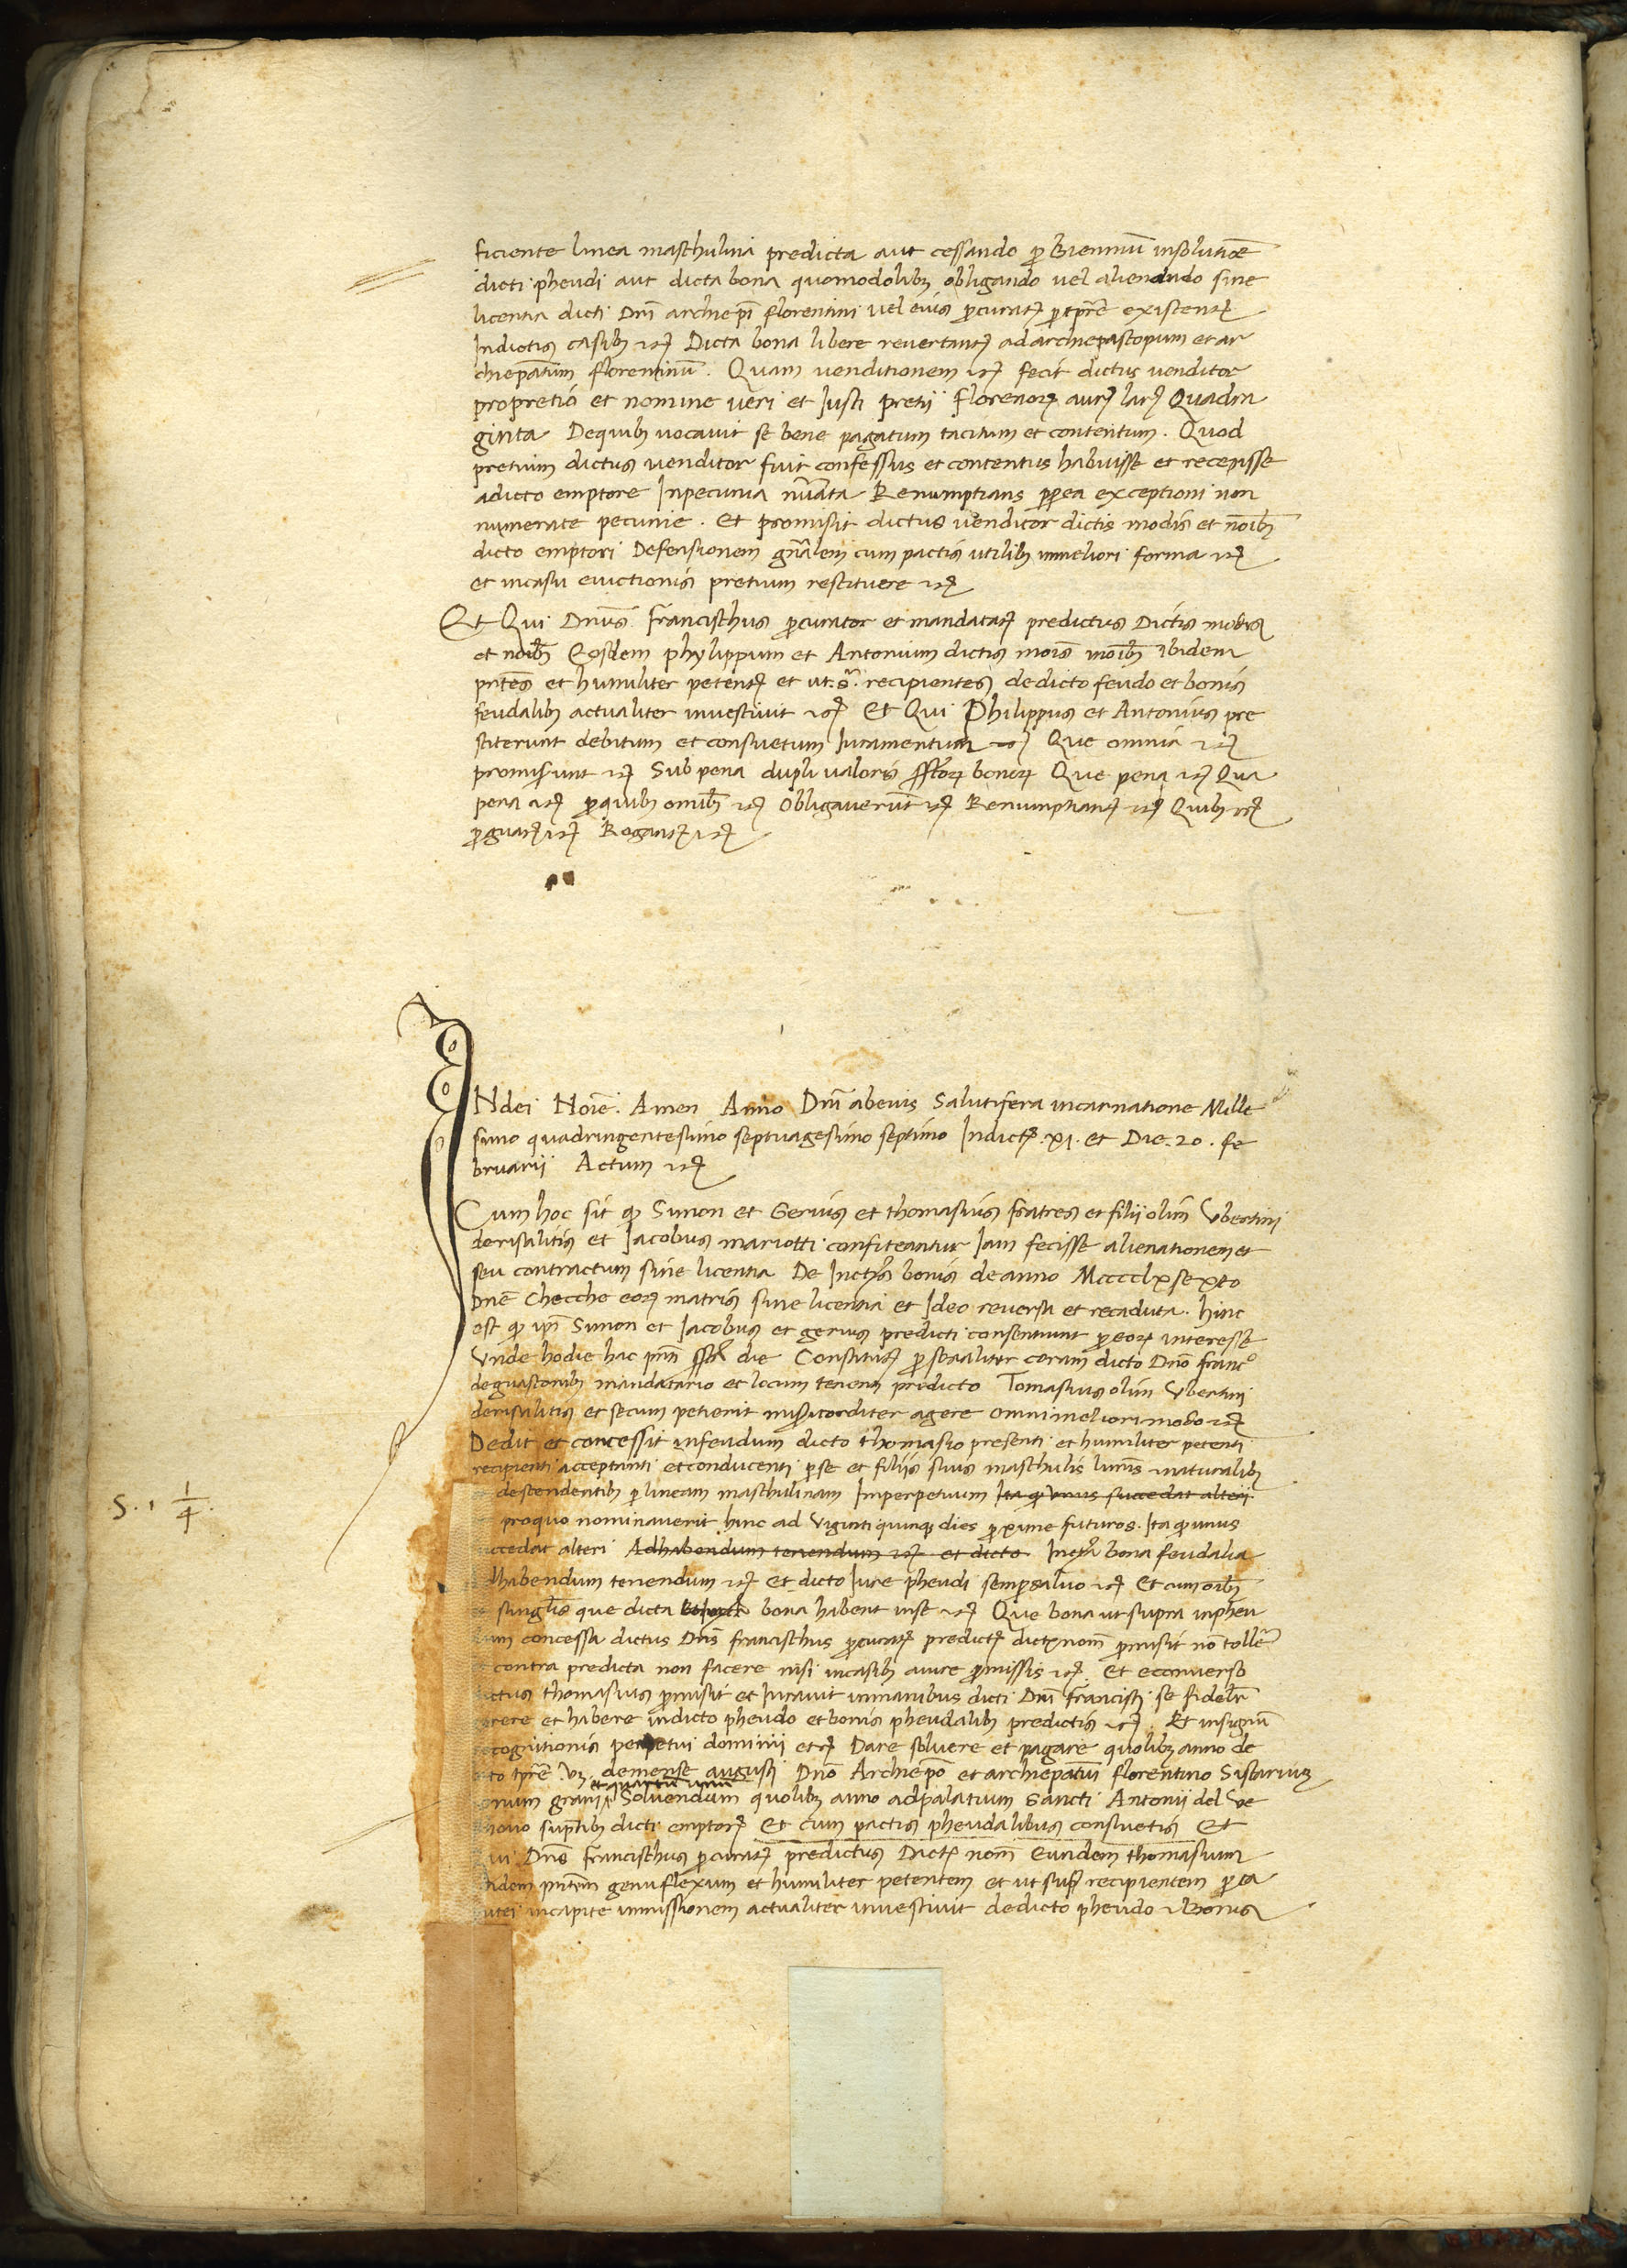 ficiente linea maschulina predicta aut cessando ꝑ Biennuū insolutiōe
dicti pheudi aut dicta bona quomodolibꝫ obligando uel aliendndo sine
licentia dicti Dnī archiepī florentini uel eius ꝓcuratꝫ ꝓ tpr̄e existentꝫ
Indictis casibꝫ ⁊cꝫ Dicta bona libere reuertantꝫ ad archiepiscopum et ar
chiepatūm florentinū. Quam uenditionem ⁊cꝫ fecit dictus uenditor
pro pretio et nomine ueri et Justi pretij florenorꝫ aurj larj Quadra
ginta Dequibꝫ uocauit se bene pagatum tacitum et contentum. Quod
pretium dictus uenditor fuit confessus et contentus habuisse et recepisse
adicto emptore Inpecunia nūata Renumptians ꝓpea exceptioni non
numerate pecunie. et promisit dictus uenditor dictis modis et noībꝫ
dicto emptori Defensionem gnālem cum pactis utilibꝫ inmeliori forma ⁊cꝫ
et incasu euictionis pretium restituere ⁊cꝫ
Et Qui Dnūs francischus ꝓcurator et mandatarꝫ predictus Dictis modis
et noībꝫ Eosdem phylippum et Antonium dictis mois noībꝫ ibidem
pn̄tes et humiliter petentꝫ et ut. sᵃ. recipientes dedicto feudo et bonis
feudalibꝫ actualiter inuestiuit ⁊cꝫ Et Qui Philippus et Antonius pre
stiterunt debitum et consuetum Juramentum ⁊cꝫ Que omnia ⁊cꝫ
promiserunt ⁊cꝫ Sub pena dupli ualoris sstorꝫ bonorꝫ Que pena ⁊cꝫ Qua
pena ⁊cꝫ ꝓquibꝫ omībꝫ ⁊cꝫ obligauerūt ⁊cꝫ Renumptiantꝫ ⁊cꝫ Quibꝫ ⁊cꝫ
ꝓ guarꝫ ⁊cꝫ Rogantꝫ ⁊cꝫ
INdei Noīe. Amen Anno Dnī abeius Salutifera incarnatione Mille
simo quadringentesimo septuagesimo septimo Indictꝫ. XI. et Die. 20. fe
bruarii Actum ⁊cꝫ
Cum hoc sit ꝙ Simon et Gerius et thomasius fratres et filii olim Vbertini
derisalitis et Jacobus mariotti confiteantur Jam fecisse alienationem et
seu contractum sine licentia De Inftīs bonis de anno Mcccclxsexto
Dnē Checche eorꝫ matris sine licentia et Ideo reuersa et recaduta. hinc
est ꝙ ipī Simon et Jacobus et gerius predicti consentiunt ꝓ eorꝫ interesse
Vnde hodie hac pn̄ti sstā die Constitutꝫ ꝑsonaliter coram dicto Dnō francᵒ
deguasconibꝫ mandatario et locum tenenti predicto Tomasius olim Vbertini
derisalitis et secum petierit misericorditer agere omnimeliori modo ⁊cꝫ
Dedit et concessit infeudum dicto thomasio presenti et humiliter petenti
recipienti acceptanti et conducenti ꝓse et filiis suis maschulis lrīmis naturalibꝫ
descendentibꝫ ꝑ lineam maschulinam Imperpetuum Ita ꝙ Vnus succedat alteri
proquo nominauerit hinc ad Viginti quinqꝫ dies ꝓxime futuros. Ita ꝙ unus
ccedat alteri Adhabendum tenendum ⁊cꝫ et dicto Inftā bona feudalia
dhabendum tenendum ⁊cꝫ et dicto Jure pheudi semꝑ saluo ⁊cꝫ Et cum oībꝫ
singlīs que dicta bona habent inse ⁊cꝫ Que bona ut supra inpheu
um concessa dictus Dnūs francischus ꝓcuratꝫ predictꝫ dictꝫ nom̄ ꝓmisit nō tollēr
contra predicta non facere nisi incasibꝫ aiure ꝓmissis ⁊cꝫ Et econuerso
ctus thomasius ꝓmisit et Jurauit inmanibus dicti Dnī francisci se fidelr̄
rere et habere indicto pheudo et bonis pheudalibꝫ predictis ⁊cꝫ Et insignū
cognitionis perpetui dominii etꝫ Dare soluere et pagare quolibꝫ anno de
to tpr̄e Vꝫ demense augusti Dnō Archiepō et archiepatūi florentino Sistarium
et quartū unū
num grani Soluendum quolibꝫ anno adpalatium Sancti Antonii del Ve
houo sumptibꝫ dicti emptorꝫ Et cum pactis pheudalibus consuetis Et
ui Dnūs francischus ꝓcuratꝫ predictus Dictꝫ nom̄ Eundem thomasium
idem pn̄tem genuflexum et humiliter petentem et ut supᵃ recipientem ꝓ ca
utei incapite inmissionem actualiter inuestiuit dedicto pheudo ⁊ Bonis
S. 1 1/4.